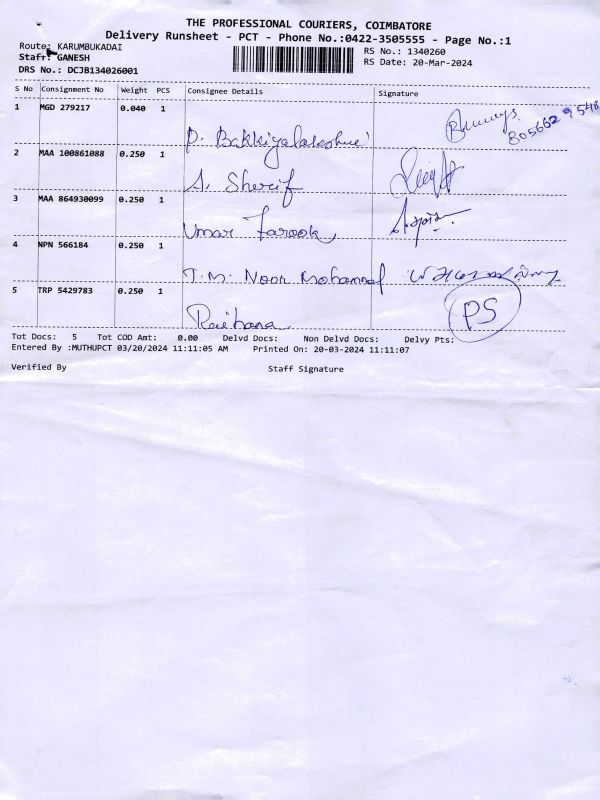 THE PROFESSIONAL COURIERS, COIMBATORE
Delivery Runsheet - PCT - Phone No.:0422-3505555 - Page No.:1
Route: KARUMBUKADAI RS No.: 1340260
Staff: GANESH RS Date: 20-Mar-2024
DRS No.: DCJB134026001
S No Consignment No Weight PCS Consignee Details Signature
1 MGD 279217 0.040 1
P. Bakkiyalakshmi 805662 9548
2 MAA 100861088 0.250 1
A. Sherif
3 MAA 864930099 0.250 1
Umar Farook
4 NPN 566184 0.250 1
T.M. Noor Mohammed
5 TRP 5429783 0.250 1
Raihana PS
Tot Docs: 5 Tot COD Amt: 0.00 Delvd Docs: Non Delvd Docs: Delvy Pts:
Entered By :MUTHUPCT 03/20/2024 11:11:05 AM Printed On: 20-03-2024 11:11:07
Verified By Staff Signature